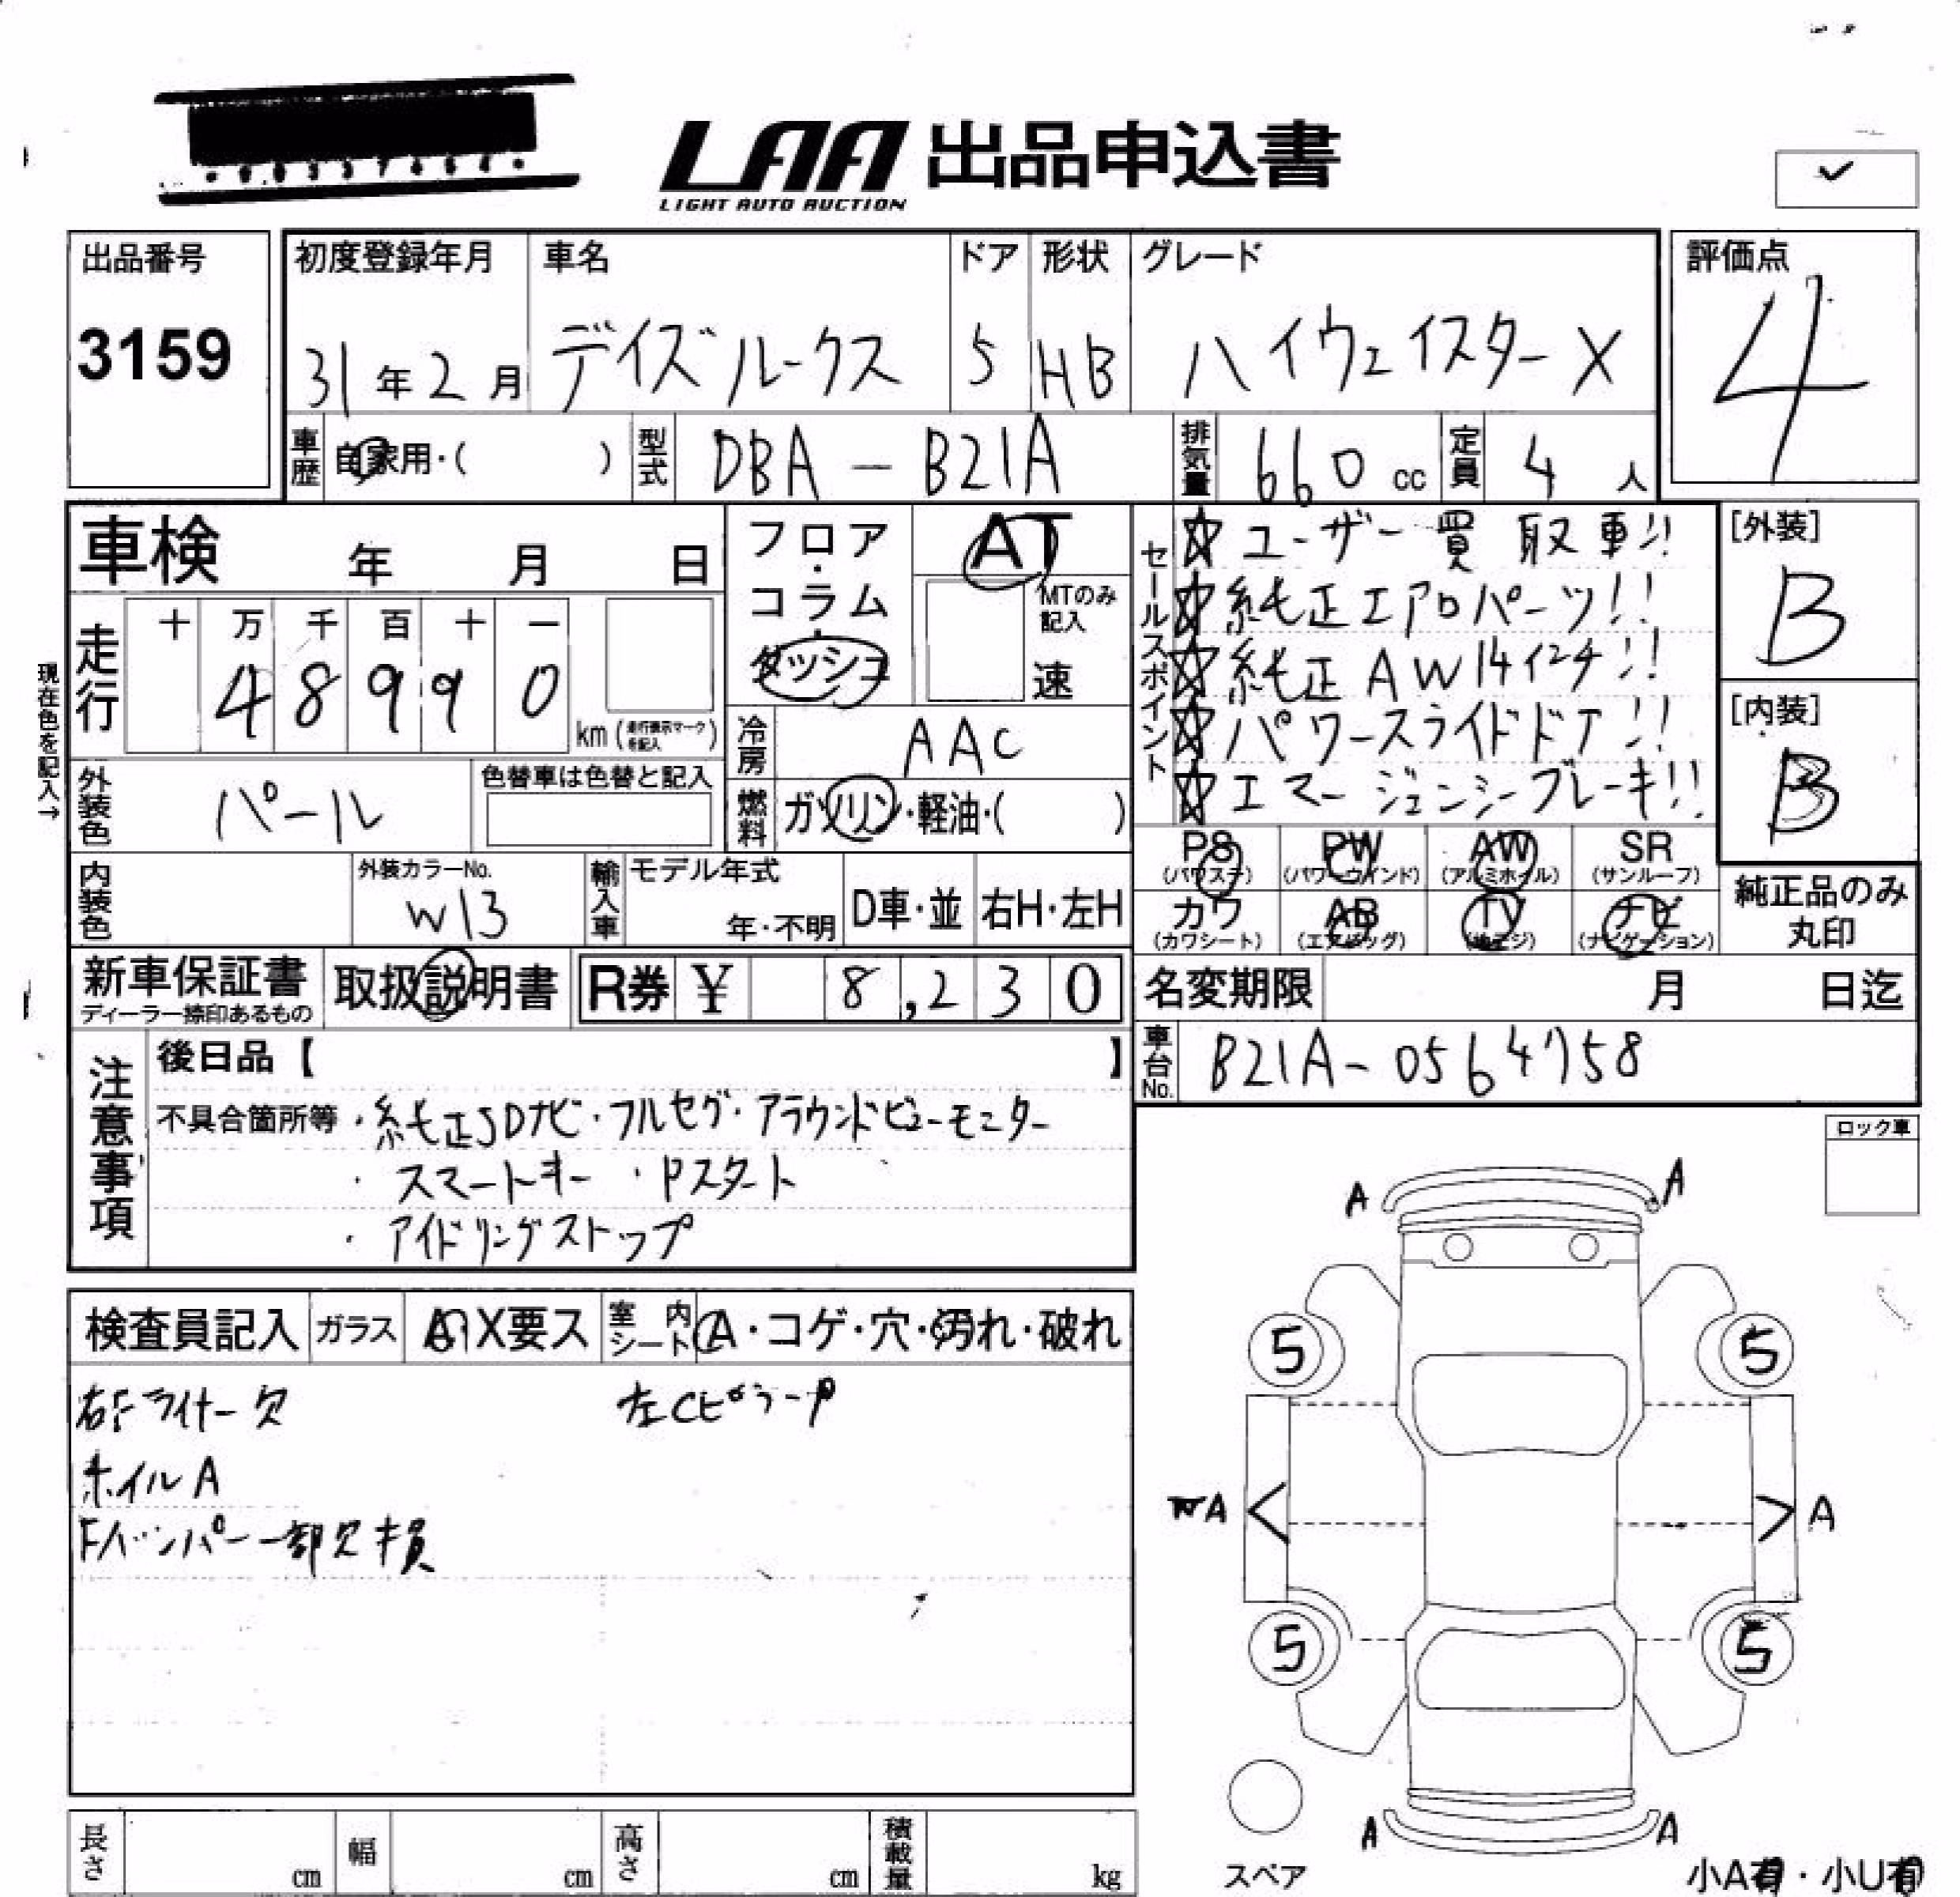 LAA 出品申込書
LIGHT AUTO AUCTION
出品番号
3159
初度登録年月
31年2月
車名
デイズルークス
ドア
5
形状
HB
グレード
ハイウェイスターX
評価点
4
車歴 自家用・( )
型式 DBA-B21A
排気量 660 cc
定員 4 人
車検 年 月 日
走行 十 万 千 百 十 一
4 8 9 9 0
km (走行表示マークを記入)
現在色を記入→
フロア・コラム・ダッシュ
AT
MTのみ記入
速
冷房 AAC
燃料 ガソリン・軽油・( )
外装色 パール
色替車は色替と記入
内装色
外装カラーNo.
W13
輸入車 モデル年式
年・不明
D車・並 右H・左H
セールスポイント
☆ユーザー買取車!!
☆純正エアロパーツ!!
☆純正AW14インチ!!
☆パワースライドドア!!
☆エマージェンシーブレーキ!!
[外装]
B
[内装]
B
PS (パワステ)
PW (パワーウインド)
AW (アルミホイル)
SR (サンルーフ)
カワ (カワシート)
AB (エアバッグ)
TV (テレビ)
ナビ (ナビゲーション)
純正品のみ
丸印
新車保証書
ディーラー捺印あるもの
取扱説明書
R券 ¥ 8,230
名変期限 月 日迄
車台No. B21A-0564758
注意事項
後日品【 】
不具合箇所等・純正SDナビ・フルセグ・アラウンドビューモニター
・スマートキー ・Pスタート
・アイドリングストップ
ロック車
検査員記入
ガラス A・X要ス
室内シート A・コゲ・穴・汚れ・破れ
右Fライナー欠
左CピラーP
ホイルA
Fバンパー一部欠損
A A
5 5
A A
5 5
A A
スペア
小A有・小U有
長さ cm
幅 cm
高さ cm
積載量 kg